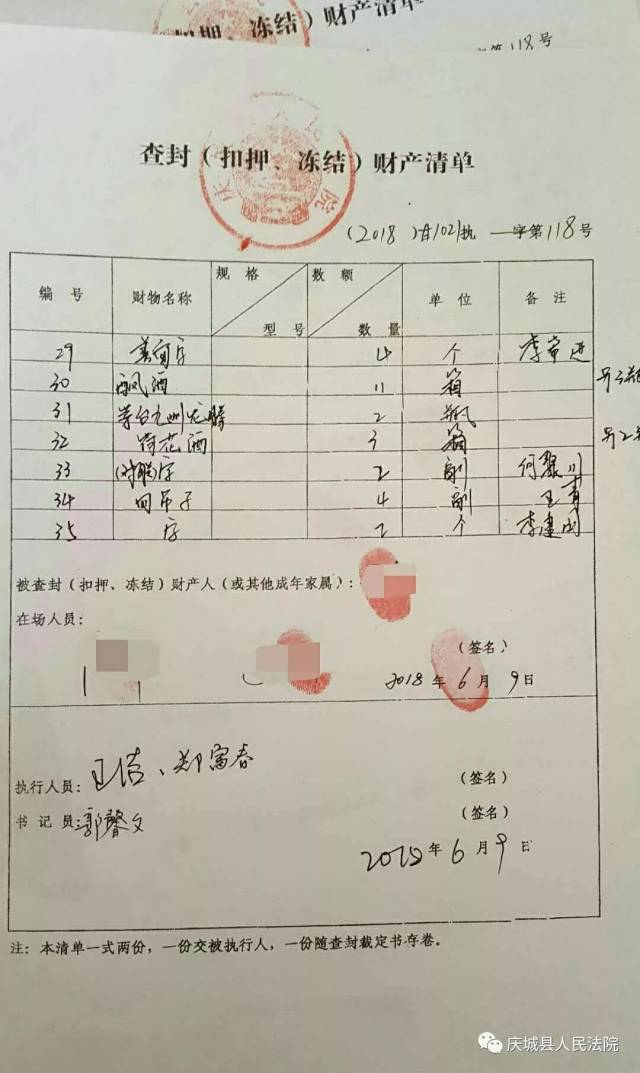 (扣押、冻结)财产清单
第118号
查封(扣押、冻结)财产清单
(2018)甘1021执 字第118号
编号 财物名称 规格 型号 数额 数量 单位 备注
29 字 4 个
30 酒 11 箱
31 茅台九州龙腾 2 瓶
32 荷花酒 3 箱
33 (对联)字 2 副
34 吊子 4 副 王青
35 字 2 个 李建国
被查封(扣押、冻结)财产人(或其他成年家属):
在场人员:
(签名)
2018年6月9日
执行人员: 王浩、郑富春 (签名)
书记员: 郭馨文 (签名)
2018年6月9日
注:本清单一式两份,一份交被执行人,一份随查封裁定书存卷。
庆城县人民法院